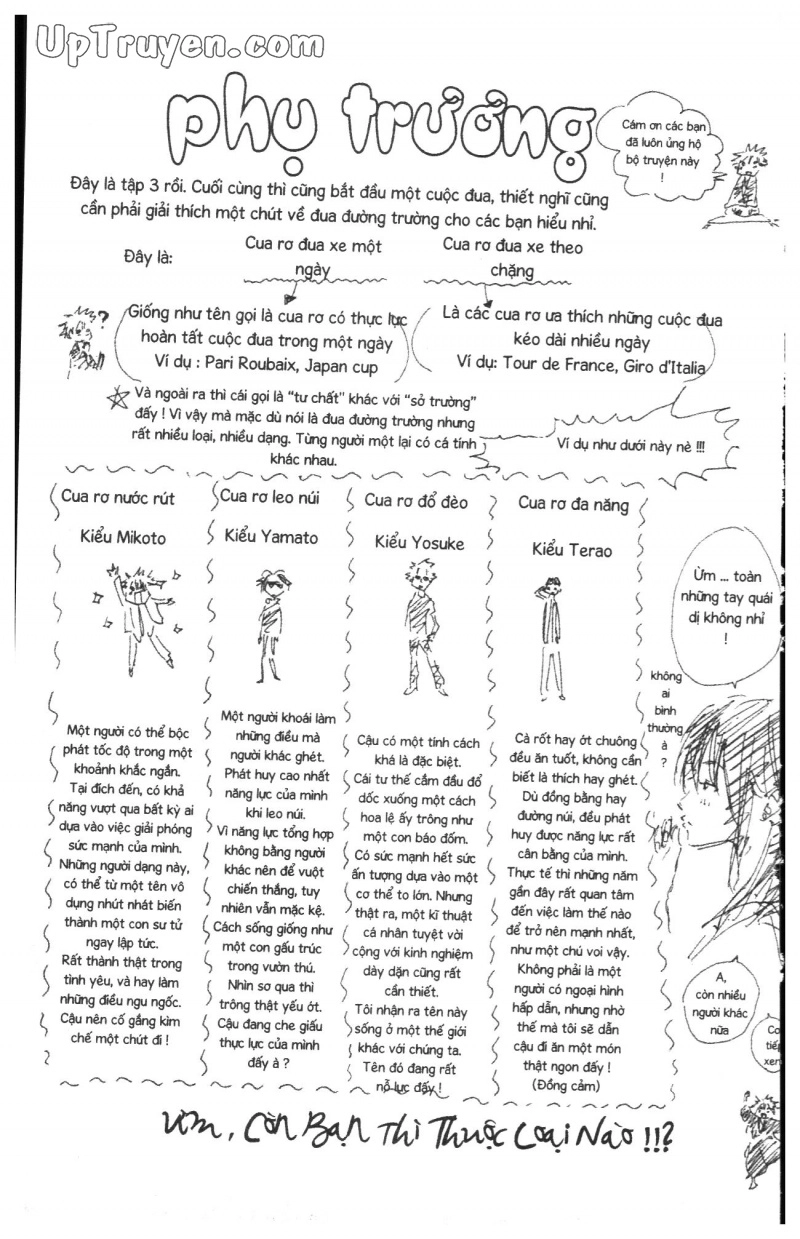 UpTruyen.com
phụ trương
Cám ơn các bạn
đã luôn ủng hộ
bộ truyện này
!
Đây là tập 3 rồi. Cuối cùng thì cũng bắt đầu một cuộc đua, thiết nghĩ cũng
cần phải giải thích một chút về đua đường trường cho các bạn hiểu nhỉ.
Đây là:
Cua rơ đua xe một
ngày
Cua rơ đua xe theo
chặng
Giống như tên gọi là cua rơ có thực lực
hoàn tất cuộc đua trong một ngày
Ví dụ : Pari Roubaix, Japan cup
Là các cua rơ ưa thích những cuộc đua
kéo dài nhiều ngày
Ví dụ: Tour de France, Giro d'Italia
?
Và ngoài ra thì cái gọi là “tư chất” khác với “sở trường”
đấy ! Vì vậy mà mặc dù nói là đua đường trường nhưng
rất nhiều loại, nhiều dạng. Từng người một lại có cá tính
khác nhau.
Ví dụ như dưới này nè !!!
Cua rơ nước rút
Kiểu Mikoto
Một người có thể bộc
phát tốc độ trong một
khoảnh khắc ngắn.
Tại đích đến, có khả
năng vượt qua bất kỳ ai
dựa vào việc giải phóng
sức mạnh của mình.
Những người dạng này,
có thể từ một tên vô
dụng nhút nhát biến
thành một con sư tử
ngay lập tức.
Rất thành thật trong
tình yêu, và hay làm
những điều ngu ngốc.
Cậu nên cố gắng kìm
chế một chút đi !
Cua rơ leo núi
Kiểu Yamato
Một người khoái làm
những điều mà
người khác ghét.
Phát huy cao nhất
năng lực của mình
khi leo núi.
Vì năng lực tổng hợp
không bằng người
khác nên để vuột
chiến thắng, tuy
nhiên vẫn mặc kệ.
Cách sống giống như
một con gấu trúc
trong vườn thú.
Nhìn sơ qua thì
trông thật yếu ớt.
Cậu đang che giấu
thực lực của mình
đấy à ?
Cua rơ đổ đèo
Kiểu Yosuke
Cậu có một tính cách
khá là đặc biệt.
Cái tư thế cắm đầu đổ
dốc xuống một cách
hoa lệ ấy trông như
một con báo đốm.
Có sức mạnh hết sức
ấn tượng dựa vào một
cơ thể to lớn. Nhưng
thật ra, một kĩ thuật
cá nhân tuyệt vời
cộng với kinh nghiệm
dày dặn cũng rất
cần thiết.
Tôi nhận ra tên này
sống ở một thế giới
khác với chúng ta.
Tên đó đang rất
nỗ lực đấy !
Cua rơ đa năng
Kiểu Terao
Cà rốt hay ớt chuông
đều ăn tuốt, không cần
biết là thích hay ghét.
Dù đồng bằng hay
đường núi, đều phát
huy được năng lực rất
cân bằng của mình.
Thực tế thì những năm
gần đây rất quan tâm
đến việc làm thế nào
để trở nên mạnh nhất,
như một chú voi vậy.
Không phải là một
người có ngoại hình
hấp dẫn, nhưng nhờ
thế mà tôi sẽ dẫn
cậu đi ăn một món
thật ngon đấy !
(Đồng cảm)
Ừm ... toàn
những tay quái
dị không nhỉ
!
không
ai
bình
thường
à
?
A,
còn nhiều
người khác
nữa
tiếp
xem
Ừm, Còn Bạn Thì Thuộc Loại Nào !!!?